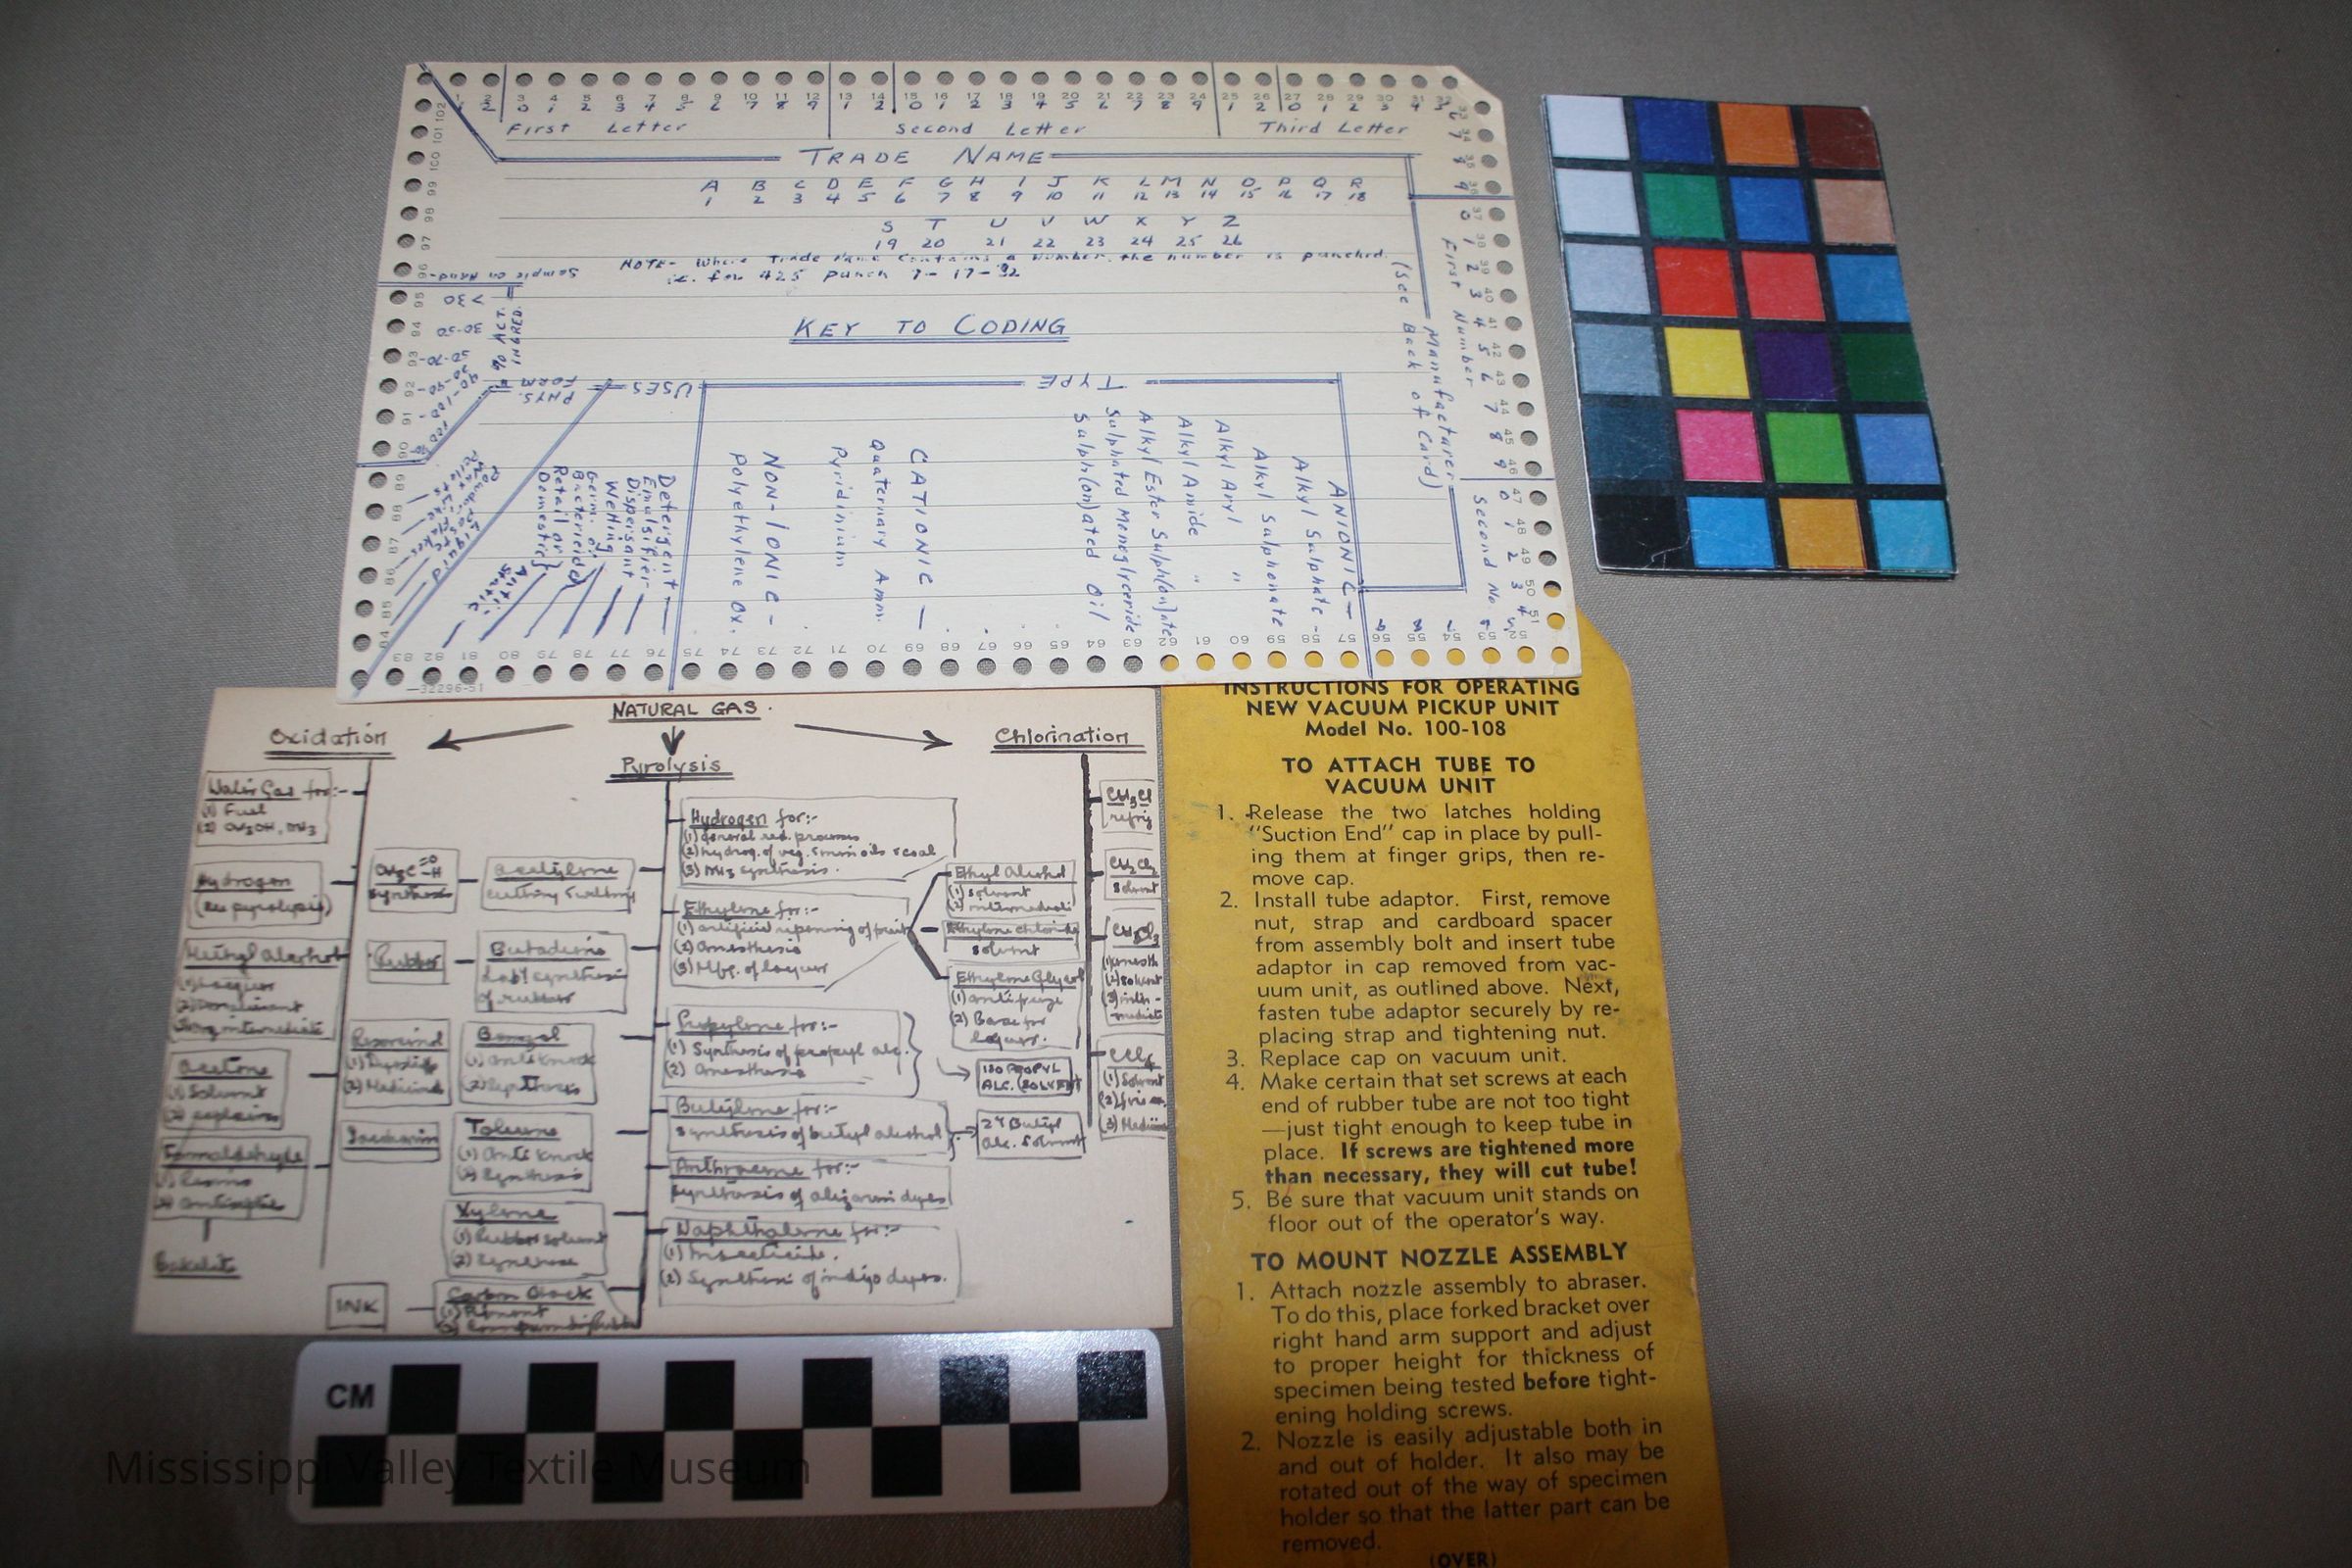 1 2 3 4 5 6 7 8 9 10 11 12 13 14 15 16 17 18 19 20 21 22 23 24 25 26 27 28 29 30 31
1 2 0 1 2 3 4 5 6 7 8 9 1 2 0 1 2 3 4 5 6 7 8 9 1 2 0 1 2 3 4 5
First Letter Second Letter Third Letter
TRADE NAME
A B C D E F G H I J K L M N O P Q R
1 2 3 4 5 6 7 8 9 10 11 12 13 14 15 16 17 18
S T U V W X Y Z
19 20 21 22 23 24 25 26
NOTE- Where Trade Name contains a number, the number is punched.
KEY TO CODING
Manufacturer
(See Back of Card)
First Number
0 1 2 3 4 5 6 7 8 9
Second No.
0 1 2 3 4
TYPE
ANIONIC -
Alkyl Sulphate -
Alkyl Sulphonate
Alkyl Aryl "
Alkyl Amide "
Alkyl Ester Sulph(on)ate
Sulphated Monoglyceride
Sulph(on)ated Oil
CATIONIC -
Quaternary Amm.
Pyridinium
NON-IONIC -
Polyethylene Ox.
USES
Detergent
Emulsifier
Dispersant
Wetting
Germ. or
Bactericide
Retail or
Domestic
Anti-
Static
PHYS.
FORM
Liquid
% ACT.
INGRED.
>30
30-50
50-70
Sample on Hand
32296-51
NATURAL GAS.
Oxidation
Pyrolysis
Chlorination
Water Gas for:-
(1) Fuel
(2) CH3OH, NH3
Hydrogen
(see pyrolysis)
Methyl Alcohol
Acetone
(1) Solvent
(2) explosives
Formaldehyde
(1) Resins
(2) Antiseptic
Bakelite
synthesis
Rubber
Resorcinol
(2) Medicine
Saccharin
INK
Acetylene
cutting & welding
Butadiene
of rubber
Benzol
(1) Anti Knock
(2) Synthesis
Toluene
(1) Anti Knock
(2) Synthesis
Xylene
(1) Rubber solvent
(2) Synthesis
Carbon Black
(1) Pigment
Hydrogen for:-
(1) General red. processes
(2) hydrog. of veg. & min oils & coal
(3) NH3 synthesis.
Ethylene for:-
(1) artificial ripening of fruit
(2) Anesthesia
(3) Mfg. of lacquer
Propylene for:-
(1) Synthesis of propyl alc.
(2) Anesthesia
Butylene for:-
synthesis of butyl alcohol
Anthracene for:-
synthesis of alizarin dyes
Naphthalene for:-
(1) Insecticide.
(2) Synthesis of indigo dyes.
Ethyl Alcohol
(1) solvent
(2) intermediate
Ethylene chloride
solvent
Ethylene Glycol
(1) antifreeze
(2) Base for
lacquer.
ISO PROPYL
ALC. (SOLVENT
2y Butyl
Alc. Solvent
CH3Cl
refrig
CH2Cl2
solvent
CHCl3
(2) solvent
CCl4
(1) Solvent
INSTRUCTIONS FOR OPERATING
NEW VACUUM PICKUP UNIT
Model No. 100-108
TO ATTACH TUBE TO
VACUUM UNIT
1. Release the two latches holding
"Suction End" cap in place by pull-
ing them at finger grips, then re-
move cap.
2. Install tube adaptor. First, remove
nut, strap and cardboard spacer
from assembly bolt and insert tube
adaptor in cap removed from vac-
uum unit, as outlined above. Next,
fasten tube adaptor securely by re-
placing strap and tightening nut.
3. Replace cap on vacuum unit.
4. Make certain that set screws at each
end of rubber tube are not too tight
—just tight enough to keep tube in
place. If screws are tightened more
than necessary, they will cut tube!
5. Be sure that vacuum unit stands on
floor out of the operator's way.
TO MOUNT NOZZLE ASSEMBLY
1. Attach nozzle assembly to abraser.
To do this, place forked bracket over
right hand arm support and adjust
to proper height for thickness of
specimen being tested before tight-
ening holding screws.
2. Nozzle is easily adjustable both in
and out of holder. It also may be
rotated out of the way of specimen
holder so that the latter part can be
removed.
(OVER)
CM
Mississippi Valley Textile Museum